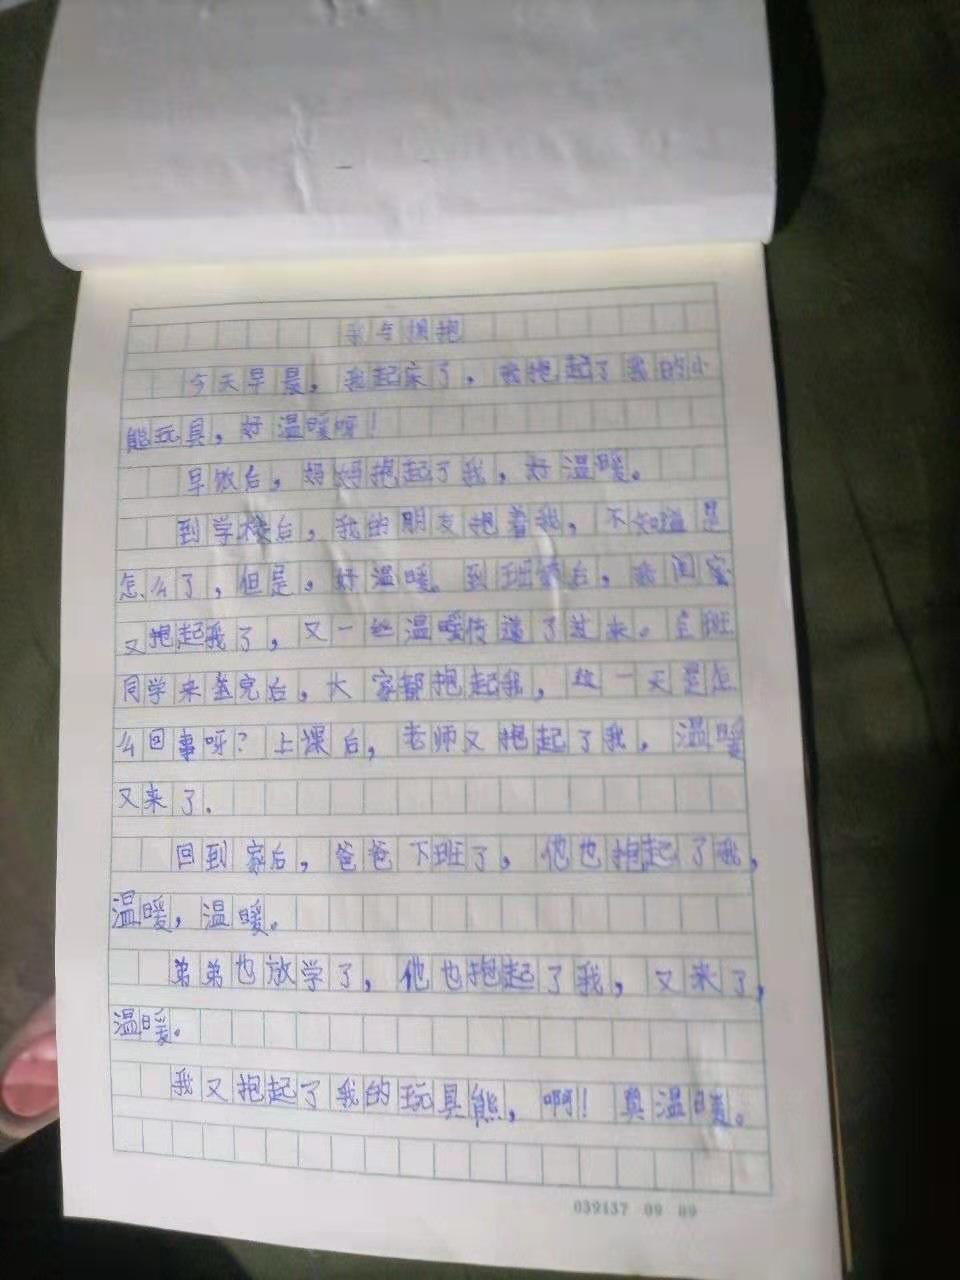 我与拥抱
今天早晨，我起床了，我抱起了我的小
熊玩具，好温暖呀！
早饭后，妈妈抱起了我，好温暖。
到学校后，我的朋友抱着我，不知道是
怎么了，但是，好温暖。到班级后，我闺蜜
又抱起我了，又一丝温暖传递了过来。全班
同学来全完后，大家都抱起我，这一天是怎
么回事呀？上课后，老师又抱起了我，温暖
又来了.
回到家后，爸爸下班了，他也抱起了我，
温暖，温暖。
弟弟也放学了，他也抱起了我，又来了，
温暖。
我又抱起了我的玩具熊，啊!！真温暖。
039137 09 09